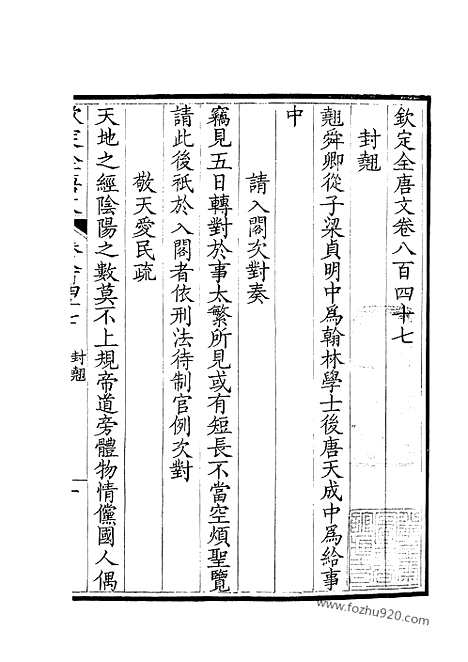 欽定全唐文卷八百四十七
封翹
翹舜卿從子梁貞明中為翰林學士後唐天成中為給事
中
請入閣次對奏
竊見五日轉對於事太繁所見或有短長不當空煩聖覽
請此後祇於入閣者依刑法待制官例次對
敬天愛民疏
天地之經陰陽之數莫不上規帝道旁體物情儻國人偶
封翹
一
www.fozhu920.com